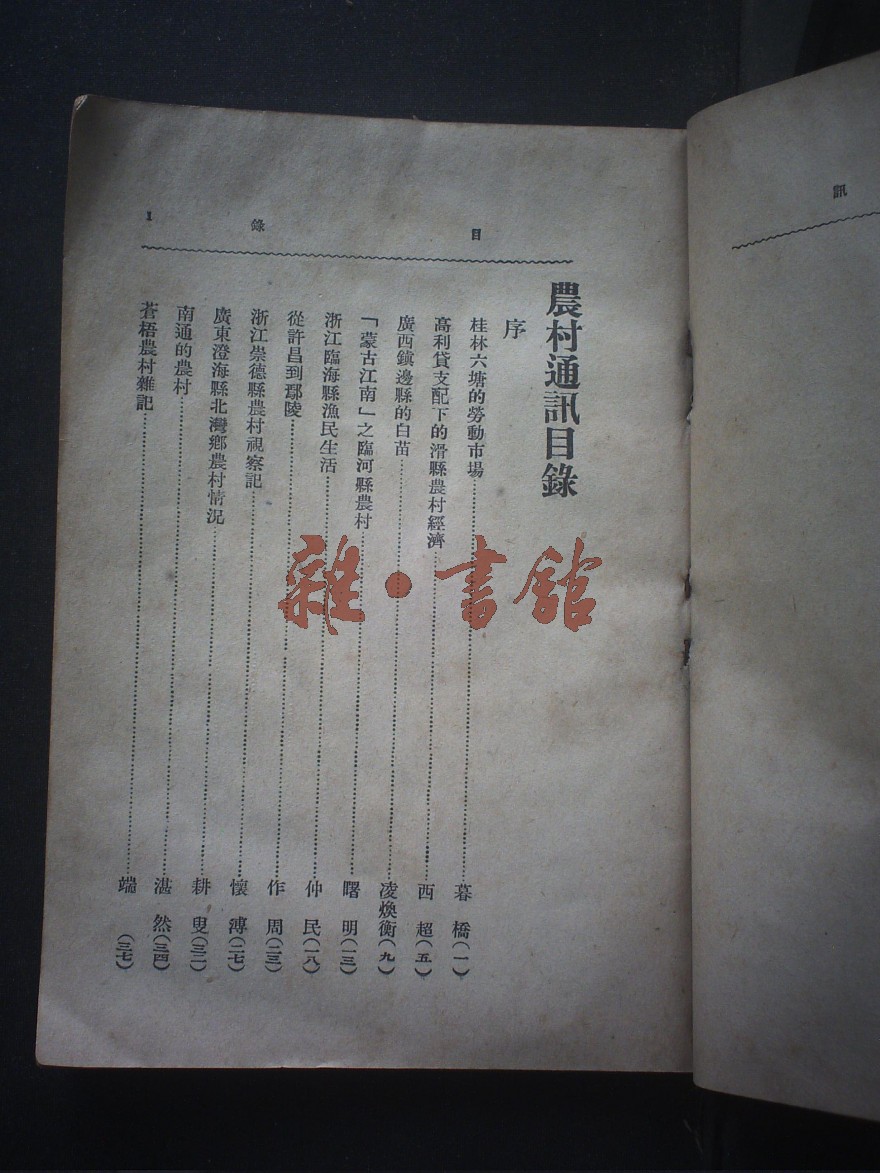 訊
目錄
1
農村通訊目錄
序
桂林六塘的勞動市場……暮橋(一)
高利貸支配下的滑縣農村經濟……西超(五)
廣西鎮邊縣的白苗……凌煥衡(九)
「蒙古江南」之臨河縣農村……曙明(一三)
浙江臨海縣漁民生活……仲民(一八)
從許昌到鄢陵……作周(二三)
浙江崇德縣農村視察記……懷溥(二七)
廣東澄海縣北灣鄉農村情況……耕叟(三二)
南通的農村……湛然(三四)
蒼梧農村雜記……端(三七)
雜·書館